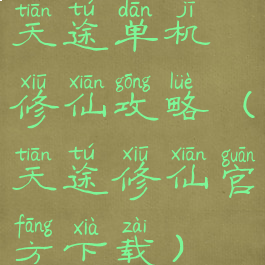 tiān tú dān jī
天途单机
xiū xiān gōng lüè
修仙攻略（
tiān tú xiū xiān guān
天途修仙官
fāng xià zài
方下载）